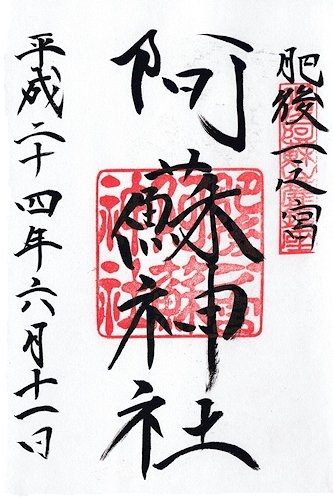 肥後一之宮
阿蘇神社
平成二十四年六月十一日